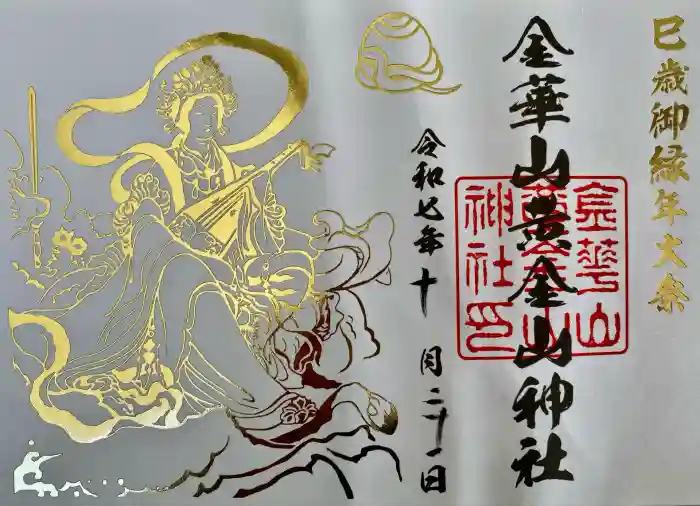 巳歳御縁年大祭
金華山黄金山神社
金華山黄金山神社印
令和七年十月二十一日
巳